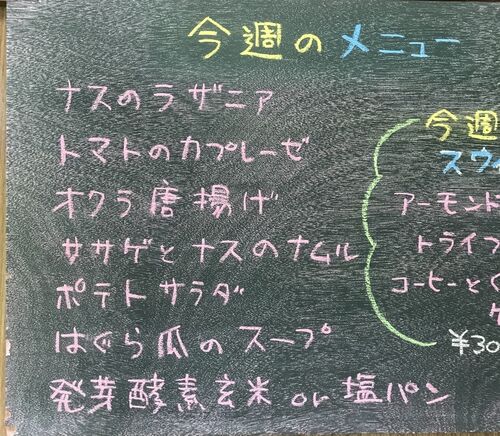 今週のメニュー
ナスのラザニア
トマトのカプレーゼ
オクラ唐揚げ
ササゲとナスのナムル
ポテトサラダ
はぐら瓜のスープ
発芽酵素玄米 or 塩パン
今週
スウィ
アーモンド
トライフ
コーヒーとく
ケ
¥30